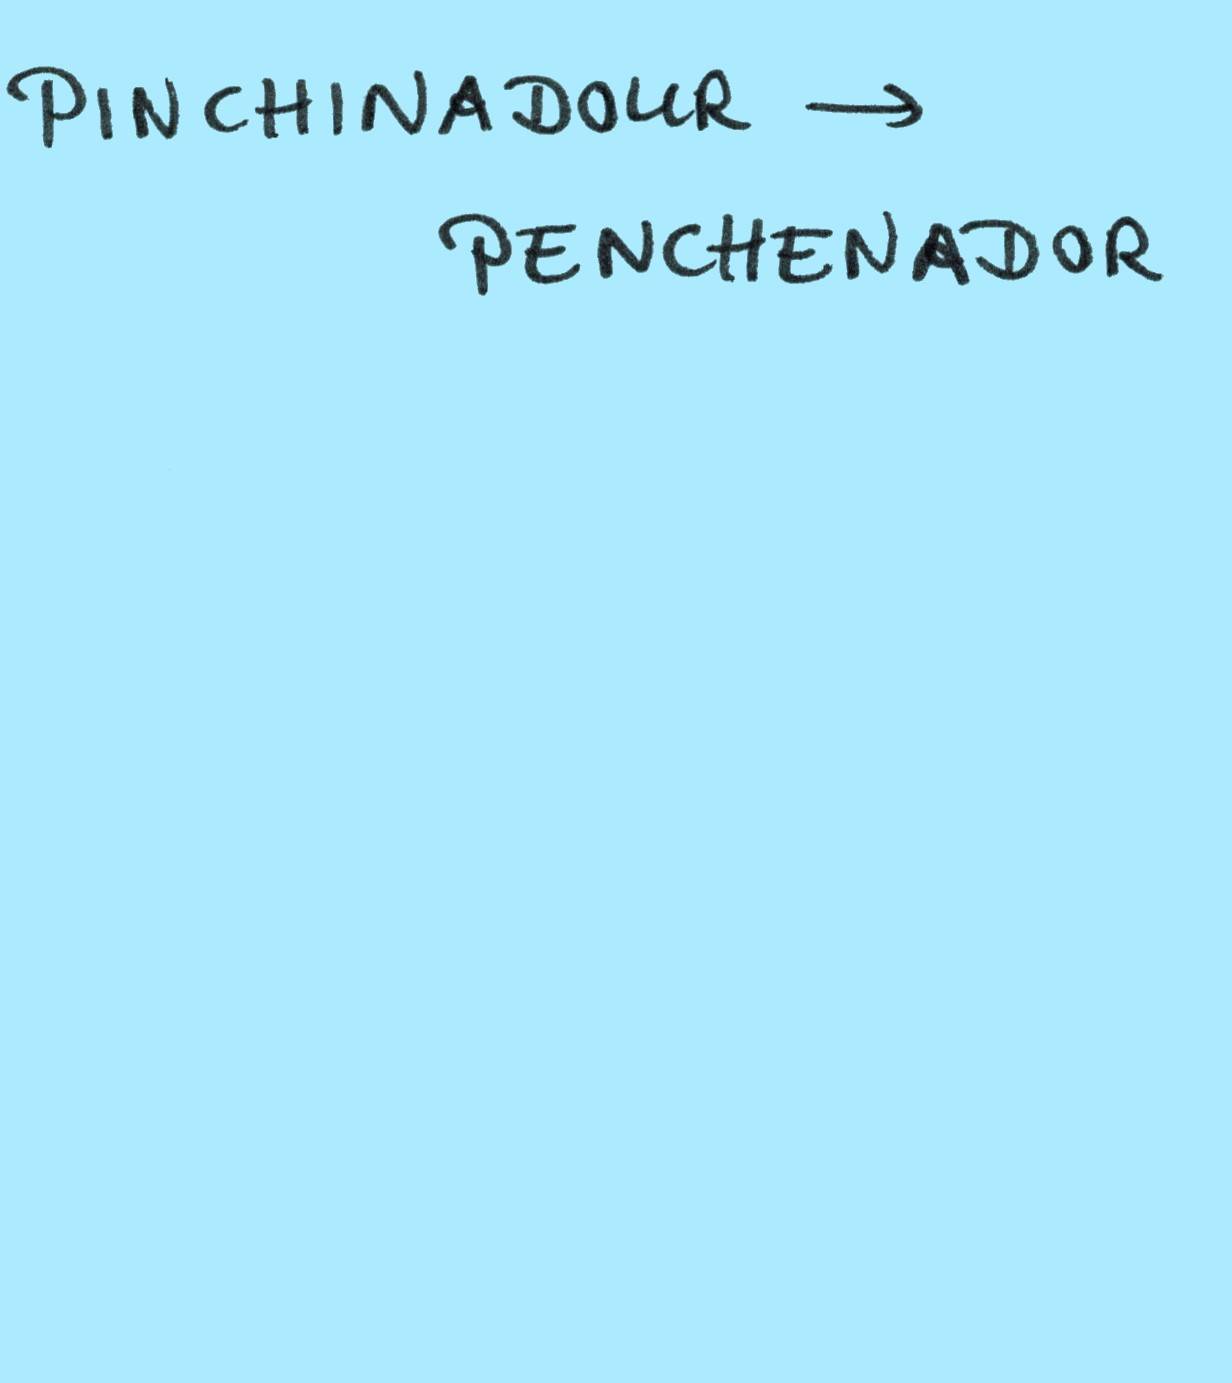 PINCHINADOUR →
PENCHENADOR